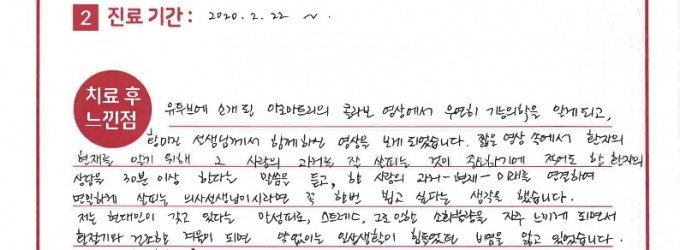 2 진료 기간 : 2020. 2. 22 ~ .
치료 후
느낀점
유투브에 소개된 아로마트리의 콜라보 영상에서 우연히 기능의학을 알게되고,
선생님께서 함께하신 영상을 보게 되었습니다. 짧은 영상 속에서 환자의
현재를 알기 위해 그 사람의 과거를 잘 살피는 것이 중요하기에 적어도 한 환자의
상담을 30분 이상 한다는 말씀을 듣고, 한 사람의 과거-현재-미래를 연결하여
면밀하게 살피는 의사선생님이시라면 꼭 한번 뵙고 싶다는 생각을 했습니다.
저는 현대인이 갖고 있다는 만성피로, 스트레스, 그로 인한 소화불량을 자주 느끼게 되면서
환절기와 건조한 겨울이 되면 약없이는 일상생활이 힘들었던 비염을 앓고 있었습니다.